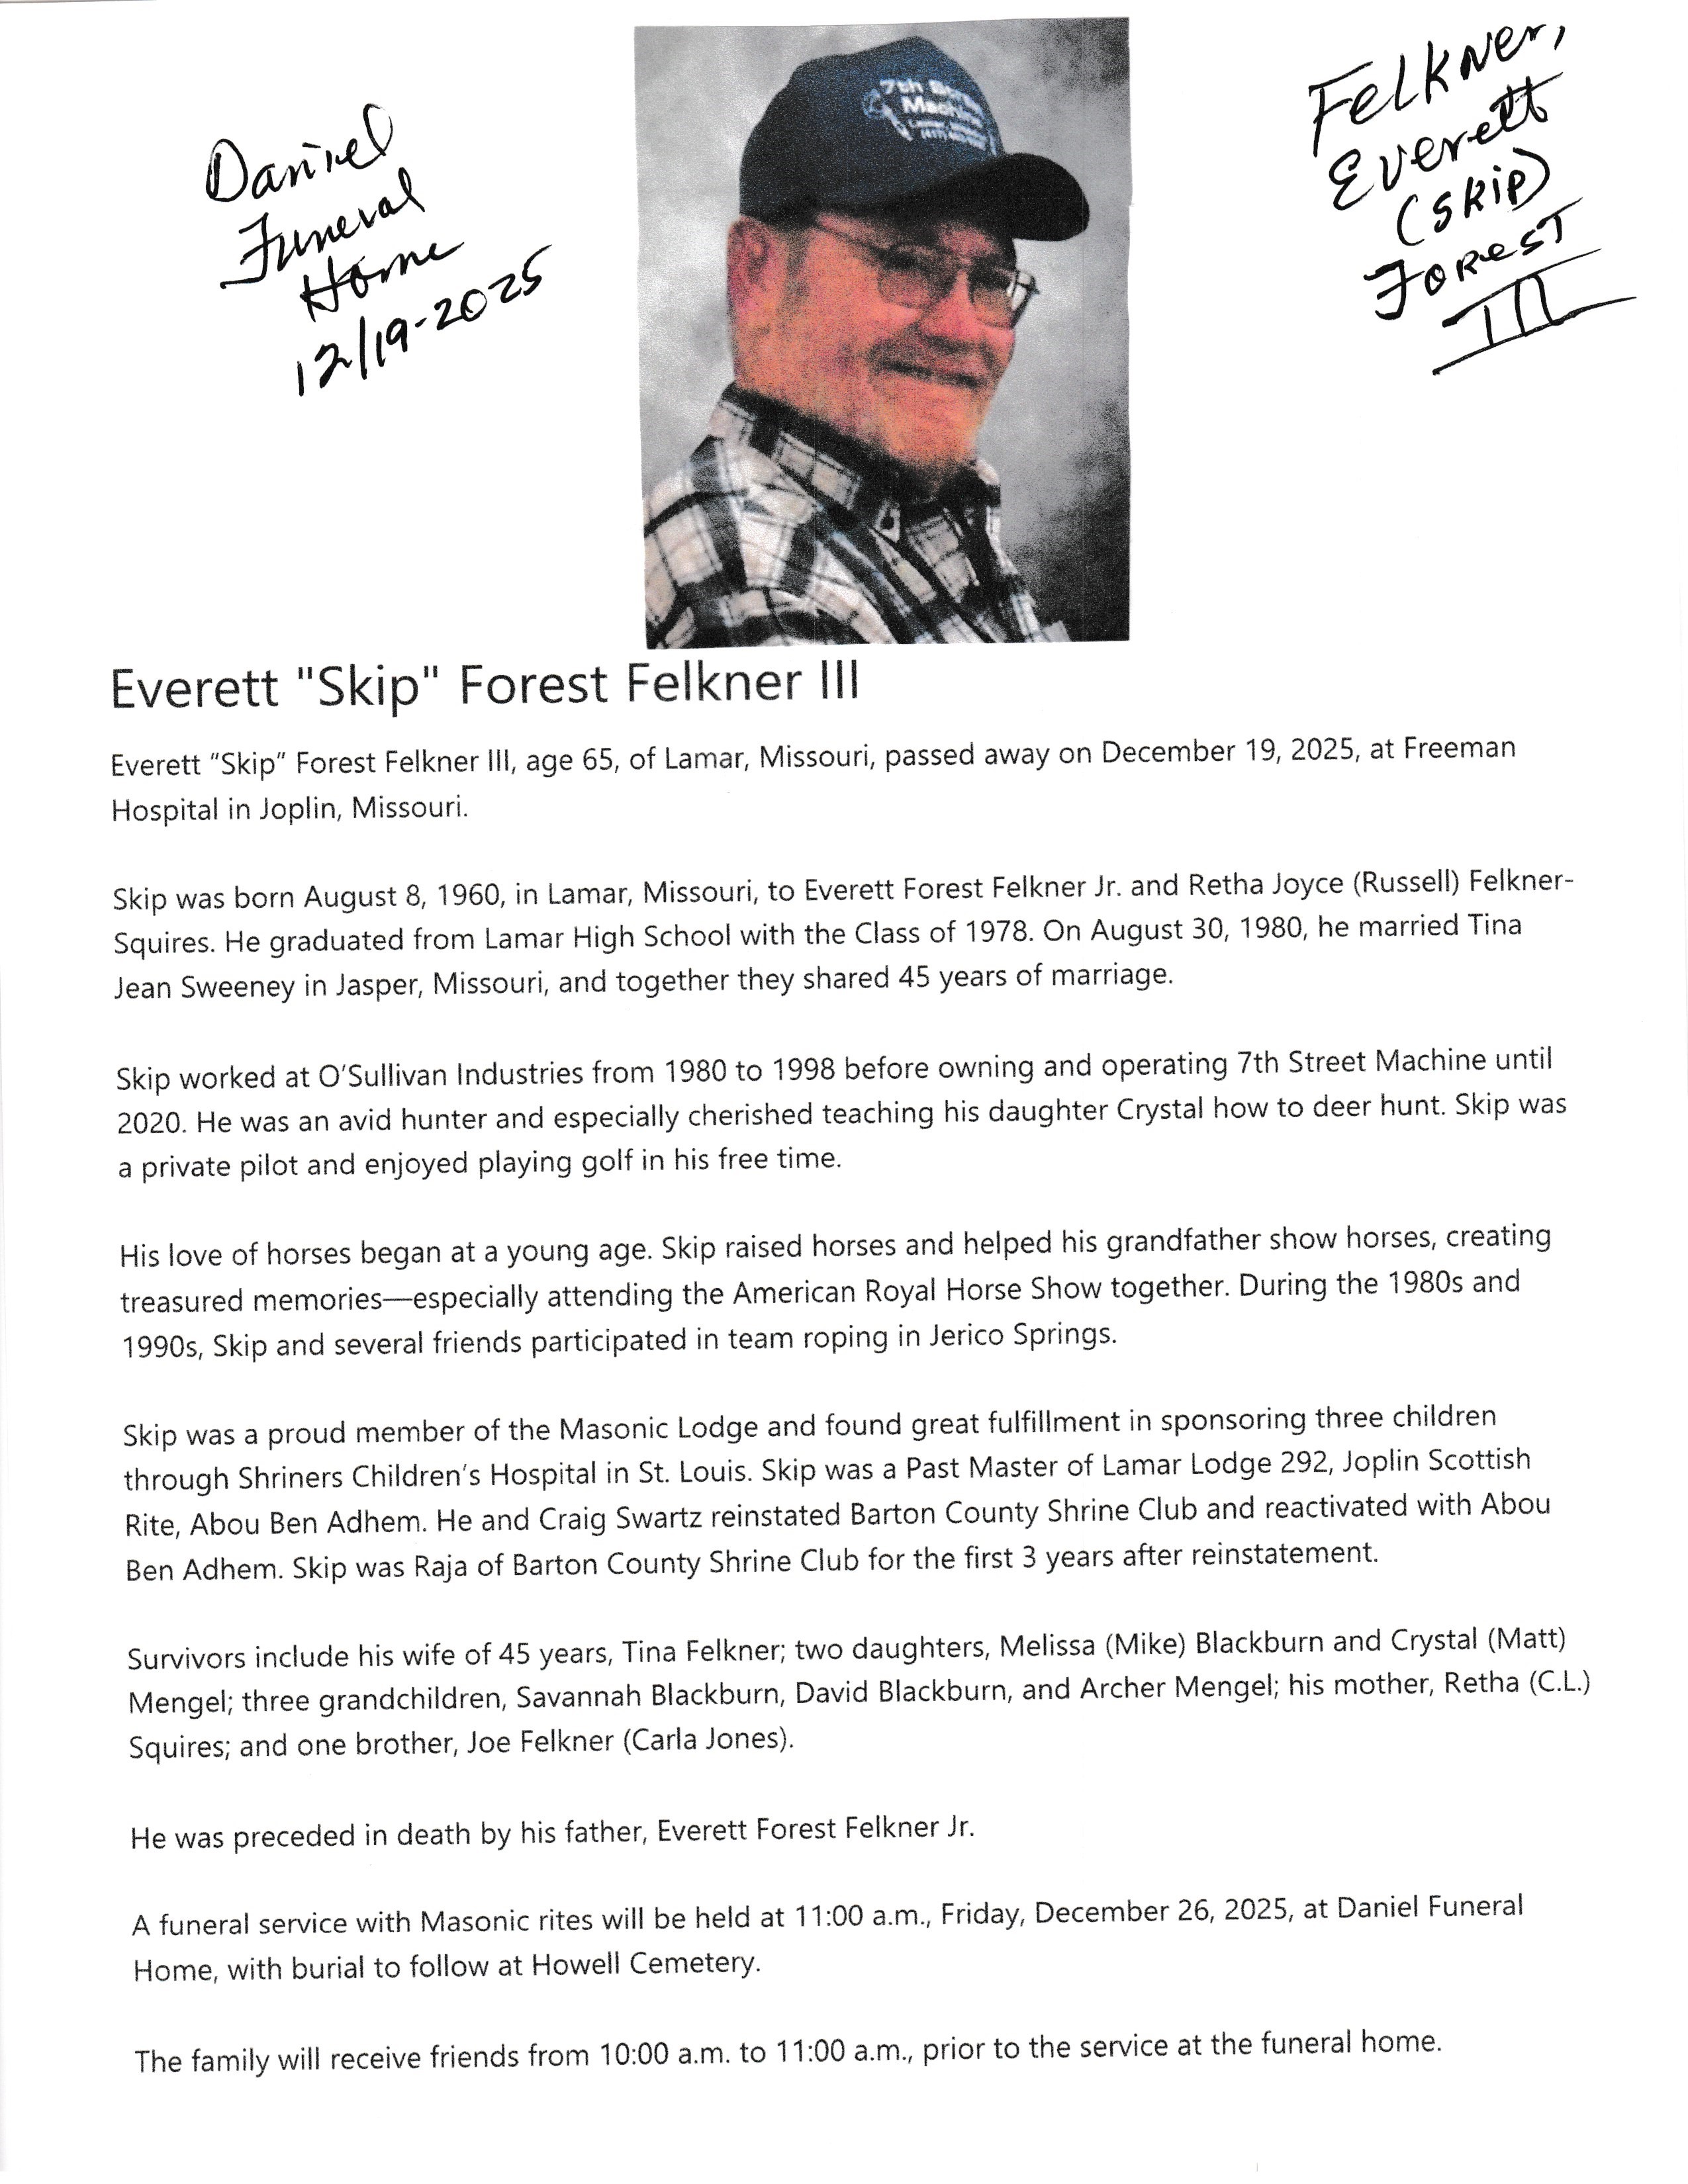 Daniel
Funeral
Home
12/19-2025
Felkner,
Everett
(Skip)
Forest
III
7th
Everett "Skip" Forest Felkner III
Everett “Skip” Forest Felkner III, age 65, of Lamar, Missouri, passed away on December 19, 2025, at Freeman
Hospital in Joplin, Missouri.
Skip was born August 8, 1960, in Lamar, Missouri, to Everett Forest Felkner Jr. and Retha Joyce (Russell) Felkner-
Squires. He graduated from Lamar High School with the Class of 1978. On August 30, 1980, he married Tina
Jean Sweeney in Jasper, Missouri, and together they shared 45 years of marriage.
Skip worked at O’Sullivan Industries from 1980 to 1998 before owning and operating 7th Street Machine until
2020. He was an avid hunter and especially cherished teaching his daughter Crystal how to deer hunt. Skip was
a private pilot and enjoyed playing golf in his free time.
His love of horses began at a young age. Skip raised horses and helped his grandfather show horses, creating
treasured memories—especially attending the American Royal Horse Show together. During the 1980s and
1990s, Skip and several friends participated in team roping in Jerico Springs.
Skip was a proud member of the Masonic Lodge and found great fulfillment in sponsoring three children
through Shriners Children’s Hospital in St. Louis. Skip was a Past Master of Lamar Lodge 292, Joplin Scottish
Rite, Abou Ben Adhem. He and Craig Swartz reinstated Barton County Shrine Club and reactivated with Abou
Ben Adhem. Skip was Raja of Barton County Shrine Club for the first 3 years after reinstatement.
Survivors include his wife of 45 years, Tina Felkner; two daughters, Melissa (Mike) Blackburn and Crystal (Matt)
Mengel; three grandchildren, Savannah Blackburn, David Blackburn, and Archer Mengel; his mother, Retha (C.L.)
Squires; and one brother, Joe Felkner (Carla Jones).
He was preceded in death by his father, Everett Forest Felkner Jr.
A funeral service with Masonic rites will be held at 11:00 a.m., Friday, December 26, 2025, at Daniel Funeral
Home, with burial to follow at Howell Cemetery.
The family will receive friends from 10:00 a.m. to 11:00 a.m., prior to the service at the funeral home.